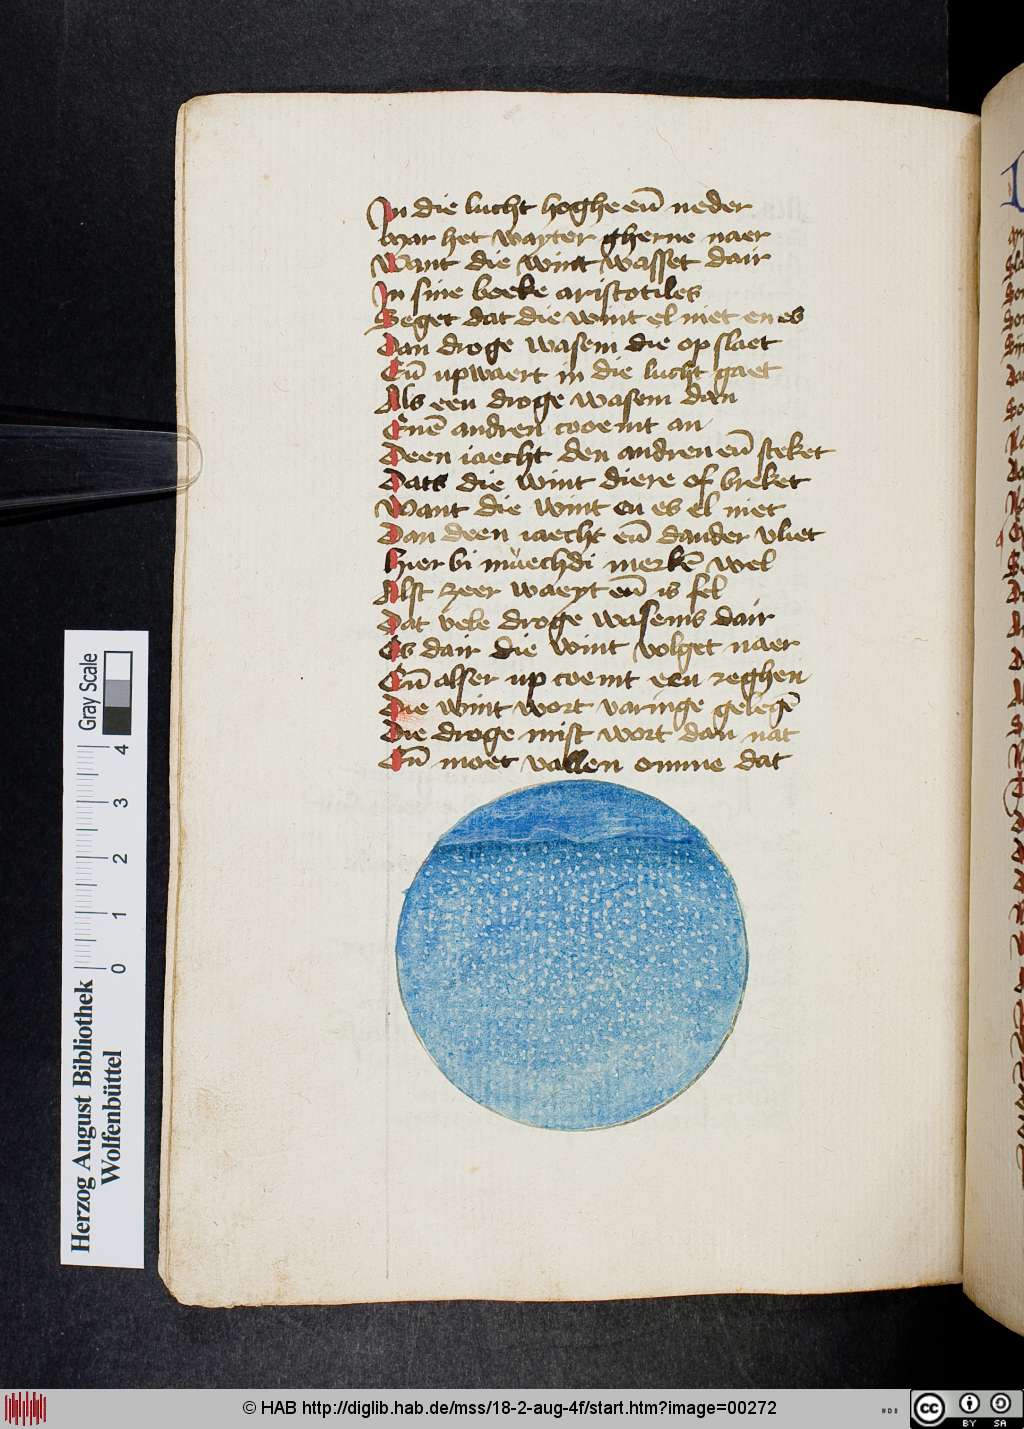 In die lucht hoghe eñ neder
Mar het wayter gherne naer
Want die wint wasset dair
In sine boeke aristotiles
Seget dat die wint el niet en es
Dan droge wasem die op slaet
Eñ upwaert in die lucht gaet
Als een droge wasem dan
Enē andren coemt an
Deen iaecht den andren eñ steket
Dats die wint diere of breket
Want die wint en es el niet
Dan deen iaecht eñ dander vliet
Hier bi muechdi merkē wel
Alst zeer waeyt eñ is fel
Dat vele droge wasems dair
Es dair die wint volget naer
Eñ alser up coemt een reghen
Die wint wort varinge gelegē
Die droge mist wort dan nat
Eñ moet vallen omme dat
Herzog August Bibliothek
Wolfenbüttel
Gray Scale
0 1 2 3 4
© HAB http://diglib.hab.de/mss/18-2-aug-4f/start.htm?image=00272
cc BY SA